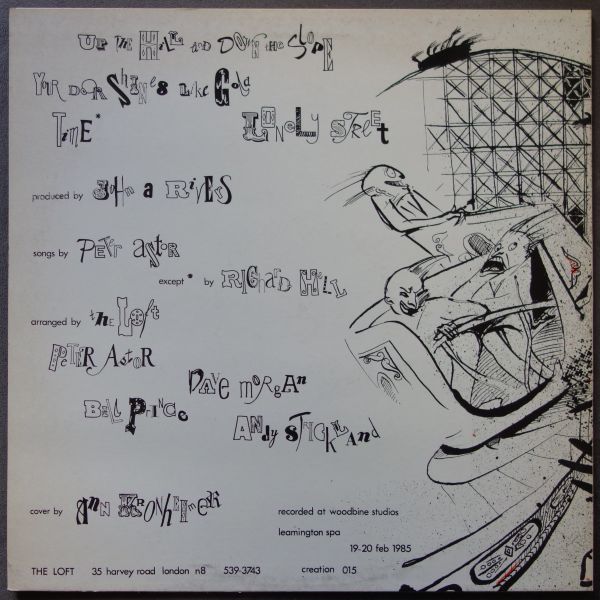 UP THE HILL AND DOWN THE SLOPE
YOUR DOOR SHINES LIKE GOLD
TIME* LONELY STREET
produced by JOHN A RIVERS
songs by PETER ASTOR
except * by RICHARD HELL
arranged by THE LOFT
PETER ASTOR
DAVE MORGAN
BILL PRINCE
ANDY STRICKLAND
cover by ANN KRONHEIMER
recorded at woodbine studios
leamington spa
19-20 feb 1985
THE LOFT 35 harvey road london n8 539-3743 creation 015